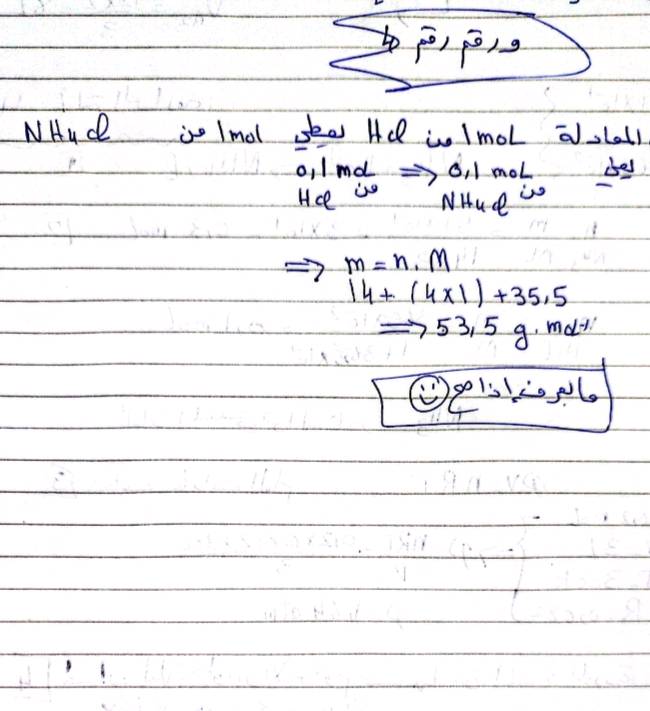 ورقم رقم 4
المعادلة 1mol من HCl تعطي 1mol من NH4Cl
يعني 0,1 mol من NH4Cl <= 0,1 mol من HCl
=> m = n . M
14 + (4x1) + 35,5
=> 53,5 g . mol-1
ما بعرف إذا صح ☺